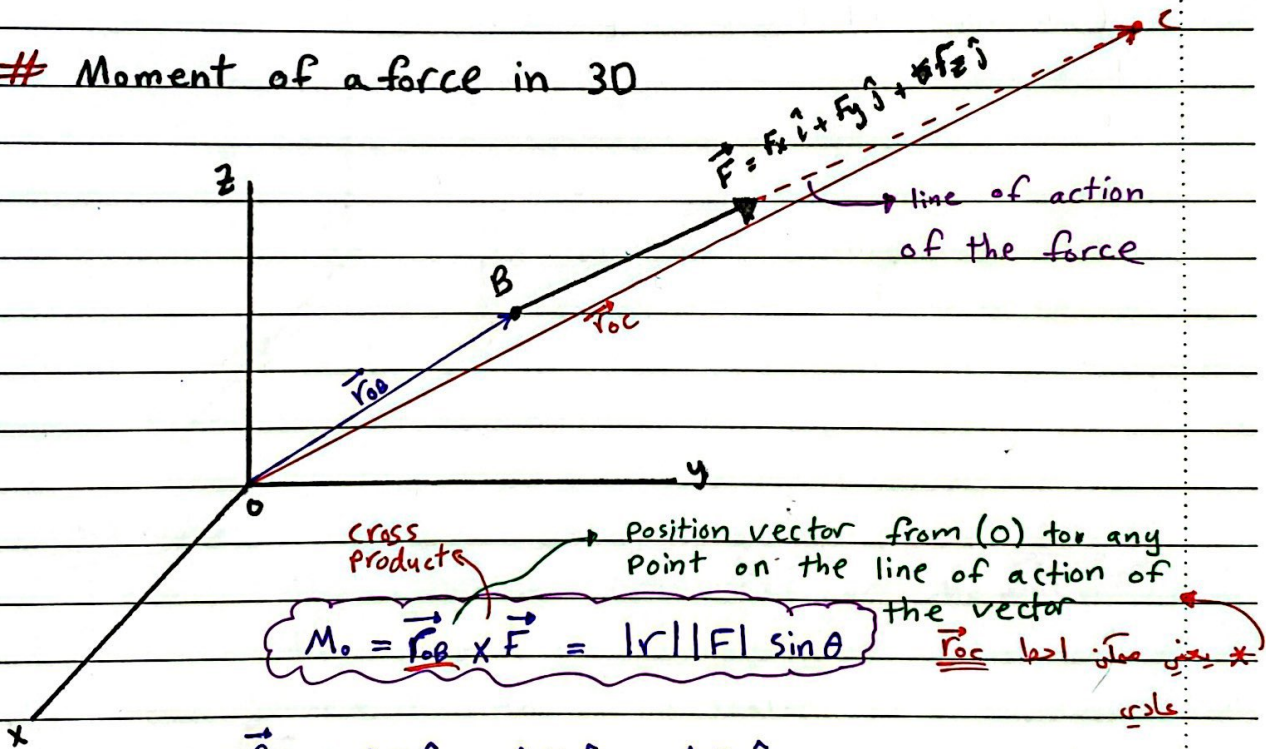 # Moment of a force in 3D
C
F = Fx î + Fy ĵ + Fz ĵ
z
line of action
of the force
B
rOC
rOB
y
O
cross
product
Position vector from (O) to any
Point on the line of action of
the vector
Mo = rOB × F = |r||F| sin θ
* يعني ممكن اخذ rOC
عادي
x